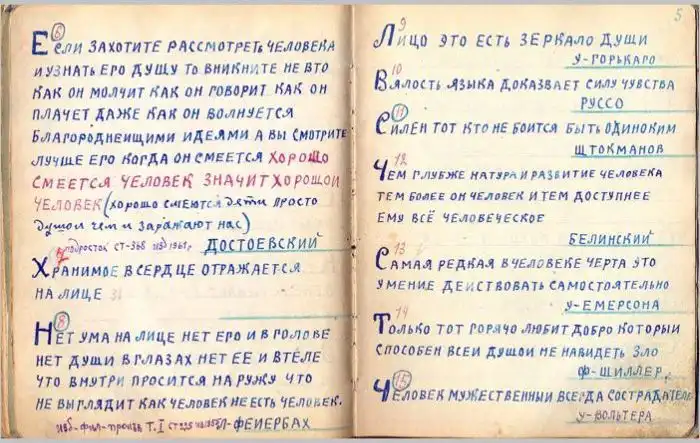 6
Если захотите рассмотреть человека
и узнать его душу то вникните не в то
как он молчит как он говорит как он
плачет даже как он волнуется
благороднеищими идеями а вы смотрите
лучше его когда он смеется хорошо
смеется человек значит хорошой
человек (хорошо смеются дети просто
душой чем и заражают нас)
подросток ст-368 изд 1961г Достоевский
7
Хранимое в сердце отражается
на лице 31
8
Нет ума на лице нет его и в голове
нет души в глазах нет ее и в теле
что внутри просится на ружу что
не выглядит как человек не есть человек.
изб-фил-произв Т. I ст 225 Л-Феиербах
5
9
Лицо это есть зеркало души
у-Горькаго
10
Вялость языка доказвает силу чувства
Руссо
11
Силен тот кто не боится быть одиноким
Щтокманов
12
Чем глубже натура и развитие человека
тем более он человек и тем доступнее
ему всё человеческое
Белинский
13
Самая редкая в человеке черта это
умение действовать самостоятельно
у-Емерсона
14
Только тот горячо любит добро которыи
способен всеи душои не навидеть зло
Ф-Шиллер,
15
Человек мужественный всегда сострадателе
у-Вольтера